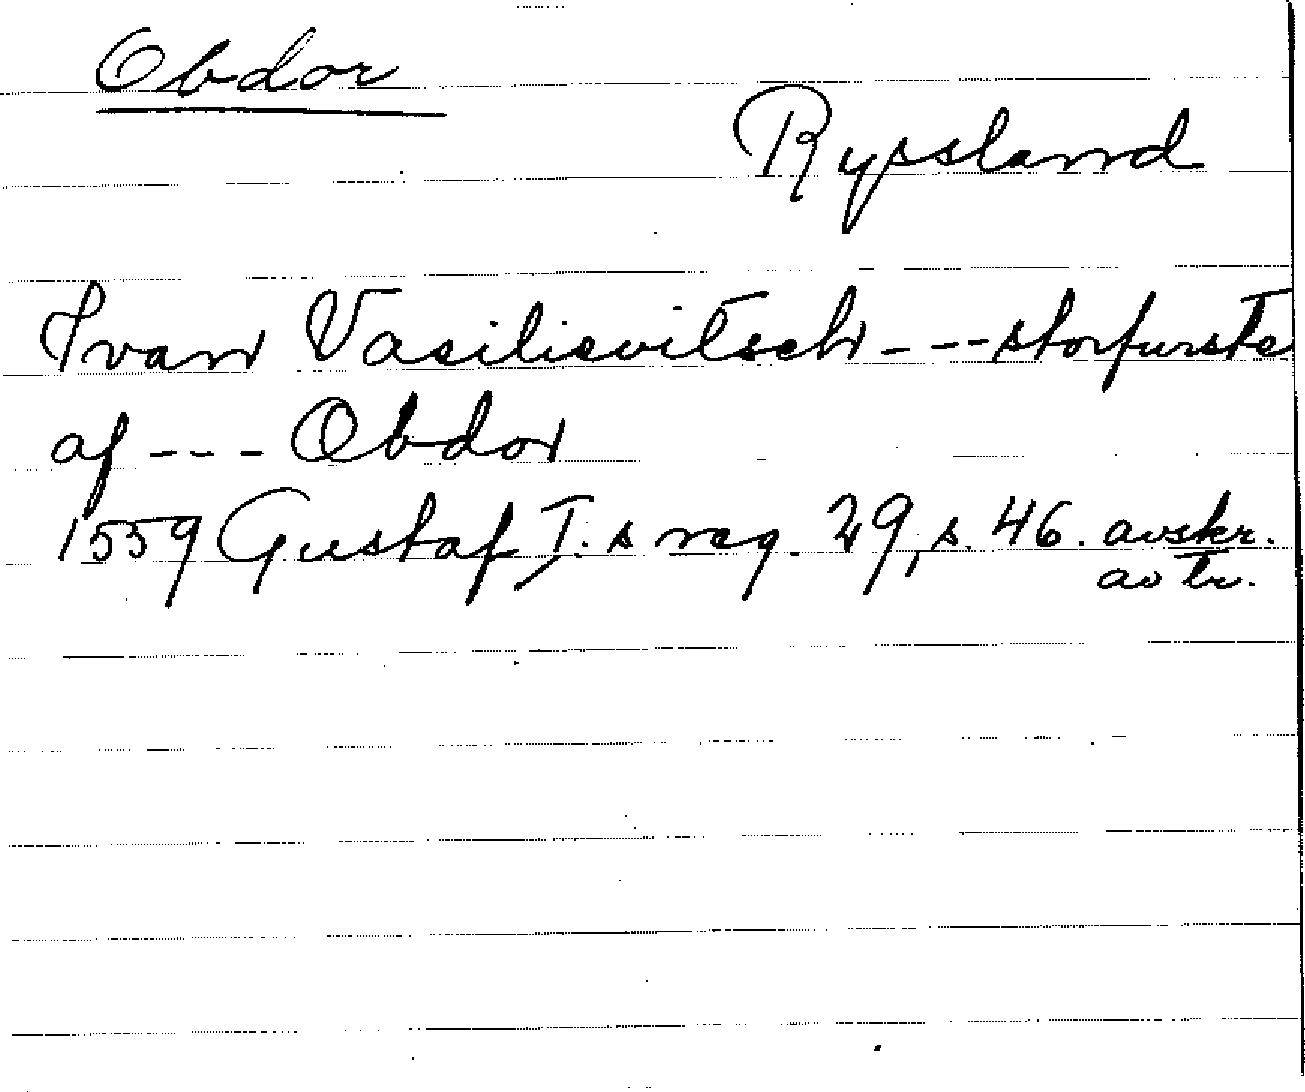 Obdor
Ryssland
Ivan Vasilievitsch --- storfurste
af --- Obdor
1559 Gustaf I:s reg. 29, s. 46. avskr.
av tr.